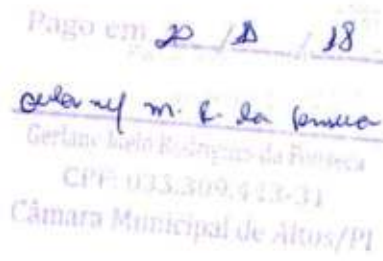 Pago em 20 / / 18
m. R. da Fonseca
Gerlane Melo Rodrigues da Fonseca
CPF: 033.309.443-31
Câmara Municipal de Altos/PI